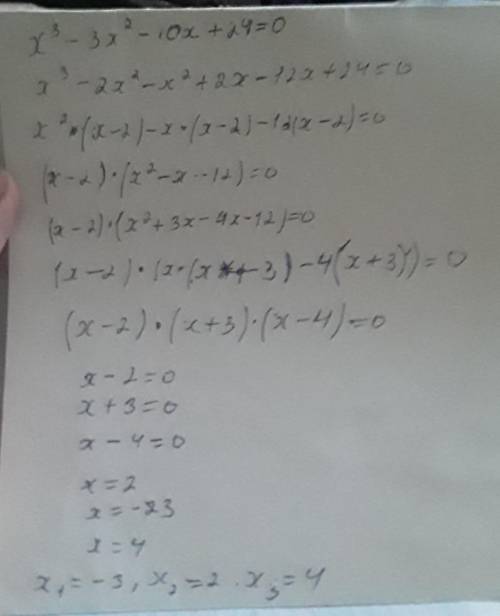 x³ - 3x² - 10x + 24 = 0
x³ - 2x² - x² + 2x - 12x + 24 = 0
x² • (x - 2) - x • (x - 2) - 12(x - 2) = 0
(x - 2) • (x² - x - 12) = 0
(x - 2) • (x² + 3x - 4x - 12) = 0
(x - 2) • (x • (x + 3) - 4(x + 3)) = 0
(x - 2) • (x + 3) • (x - 4) = 0
x - 2 = 0
x + 3 = 0
x - 4 = 0
x = 2
x = -3
x = 4
x₁ = -3, x₂ = 2. x₃ = 4